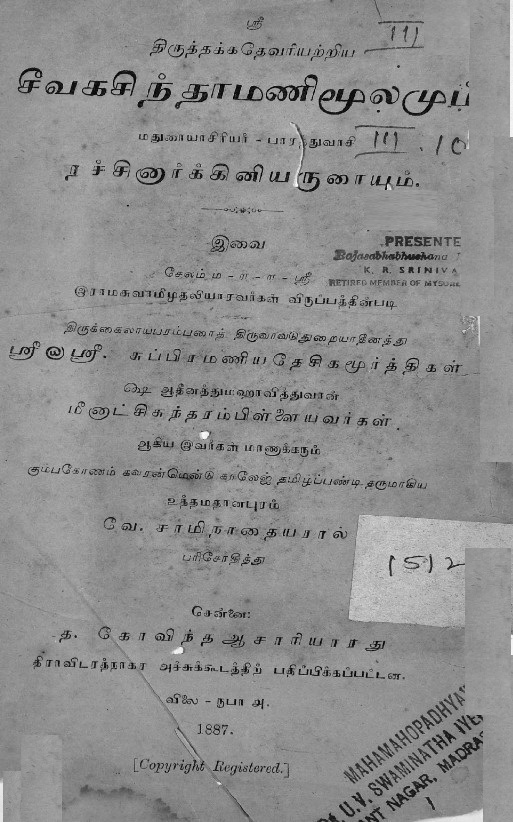 ஸ்ரீ
111
திருத்தக்கதேவரியற்றிய
சீவகசிந்தாமணிமூலமும்
மதுரையாசிரியர் - பாரத்துவாசி
111.10
நச்சினார்க்கினியருரையும்.
இவை
PRESENTE
Rajasabhabhushana
K. R. SRINIVA
RETIRED MEMBER OF MYSORE
சேலம் ம - ஈ - ஈ - ஸ்ரீ
இராமசுவாமிமுதலியாரவர்கள் விருப்பத்தின்படி
திருக்கைலாயபரம்பரைத் திருவாவடுதுறையாதீனத்து
ஸ்ரீலஸ்ரீ. சுப்பிரமணியதேசிகமூர்த்திகள்
ஷை ஆதீனத்துமஹாவித்துவான்
மீனாட்சிசுந்தரம்பிள்ளையவர்கள்.
ஆகிய இவர்கள் மாணாக்கரும்
கும்பகோணம் கவரன்மெண்டு காலேஜ் தமிழ்ப்பண்டிதருமாகிய
உத்தமதானபுரம்
வே. சாமிநாதையரால்
பரிசோதித்து
1512
சென்னை:
த. கோவிந்த ஆசாரியாரது
திராவிடரத்நாகர அச்சுக்கூடத்திற் பதிப்பிக்கப்பட்டன.
விலை - ரூபா அ.
1887.
[Copyright Registered.]
MAHAMAHOPADHYAY
U.V. SWAMINATHA IYE
ANT NAGAR, MADRAS